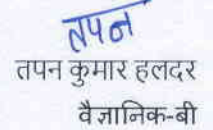 तपन
तपन कुमार हलदर
वैज्ञानिक-बी